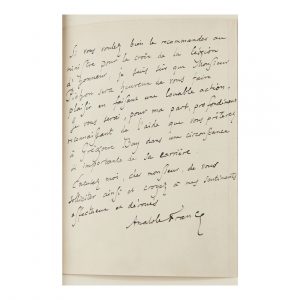 Si vous voulez bien le recommander au
ministre pour la croix de la Légion
d'Honneur je suis sûr que Monsieur
sera heureux de vous faire
plaisir en faisant une louable action.
Je vous serai, pour ma part, profondément
reconnaissant de l'aide que vous prêterez
à dans une circonstance
si importante de sa carrière.
Excusez moi, cher monsieur, de vous
solliciter ainsi et croyez à mes sentiments
affectueux et dévoués
Anatole France